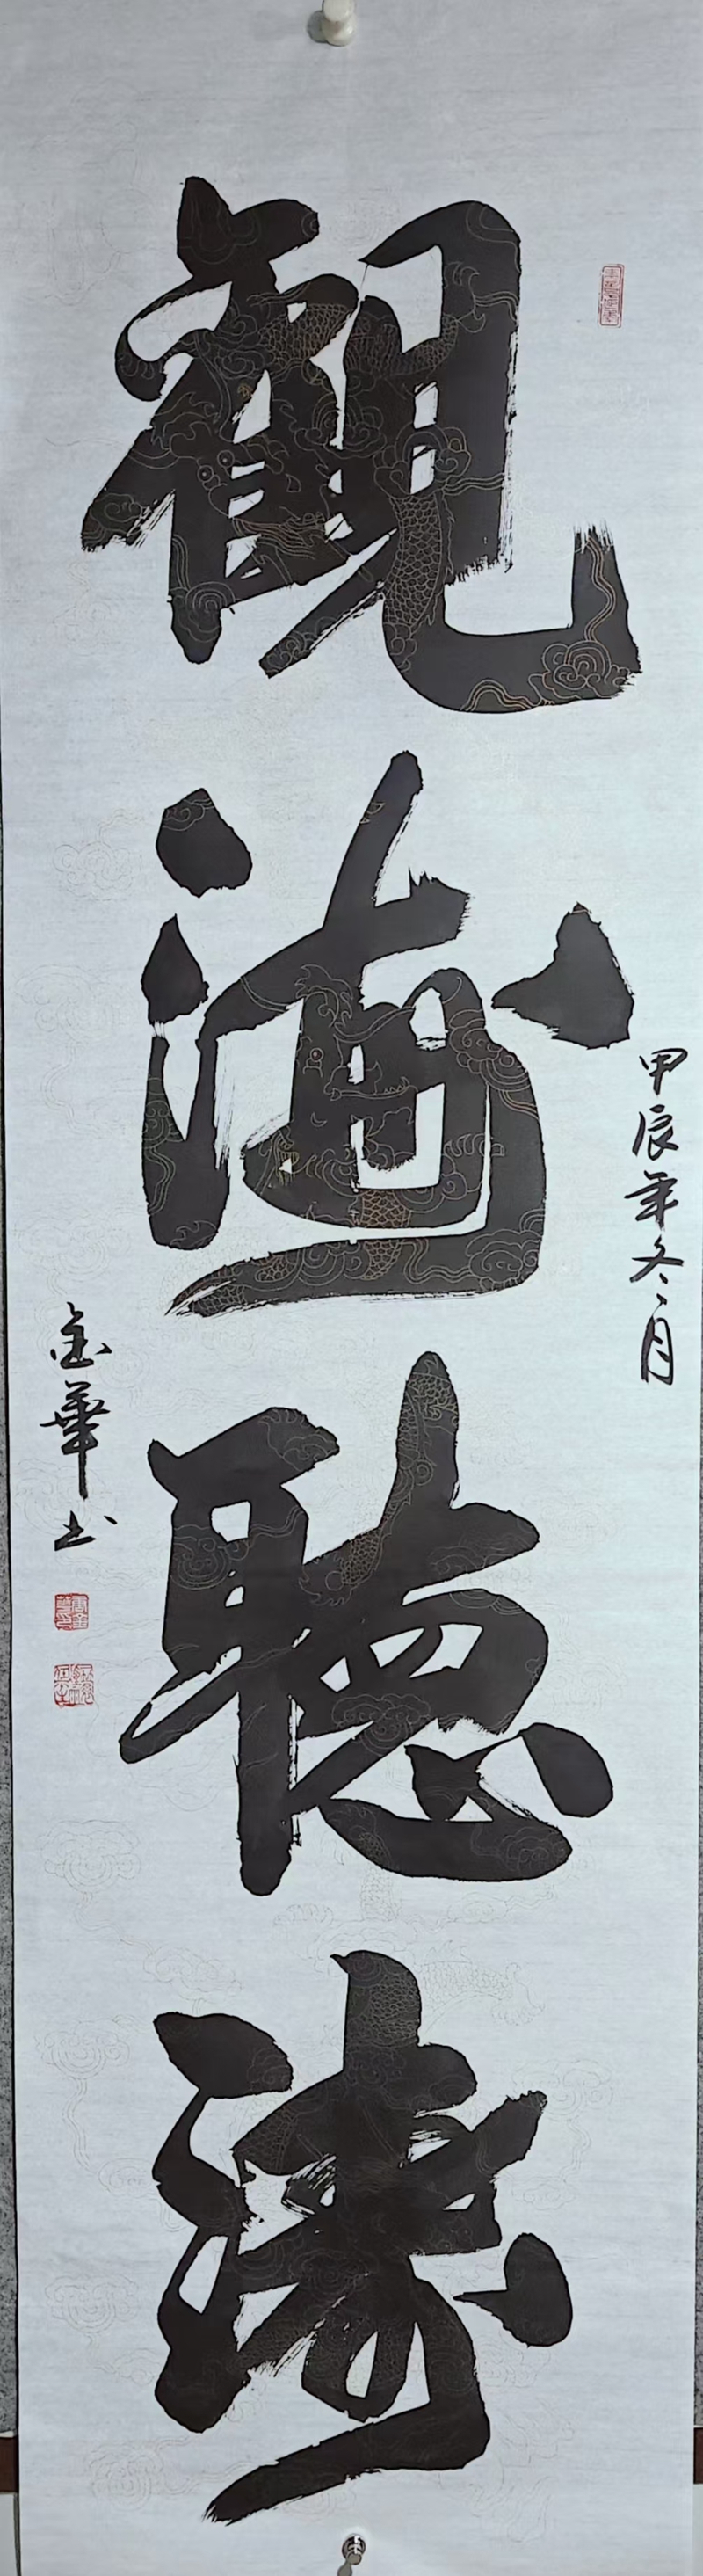 觀海聽濤
甲辰年冬月
金華书